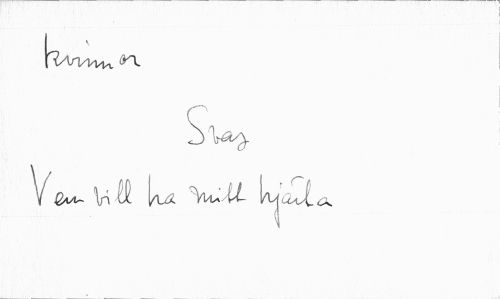 kvinnor
Svar
Vem vill ha mitt hjärta